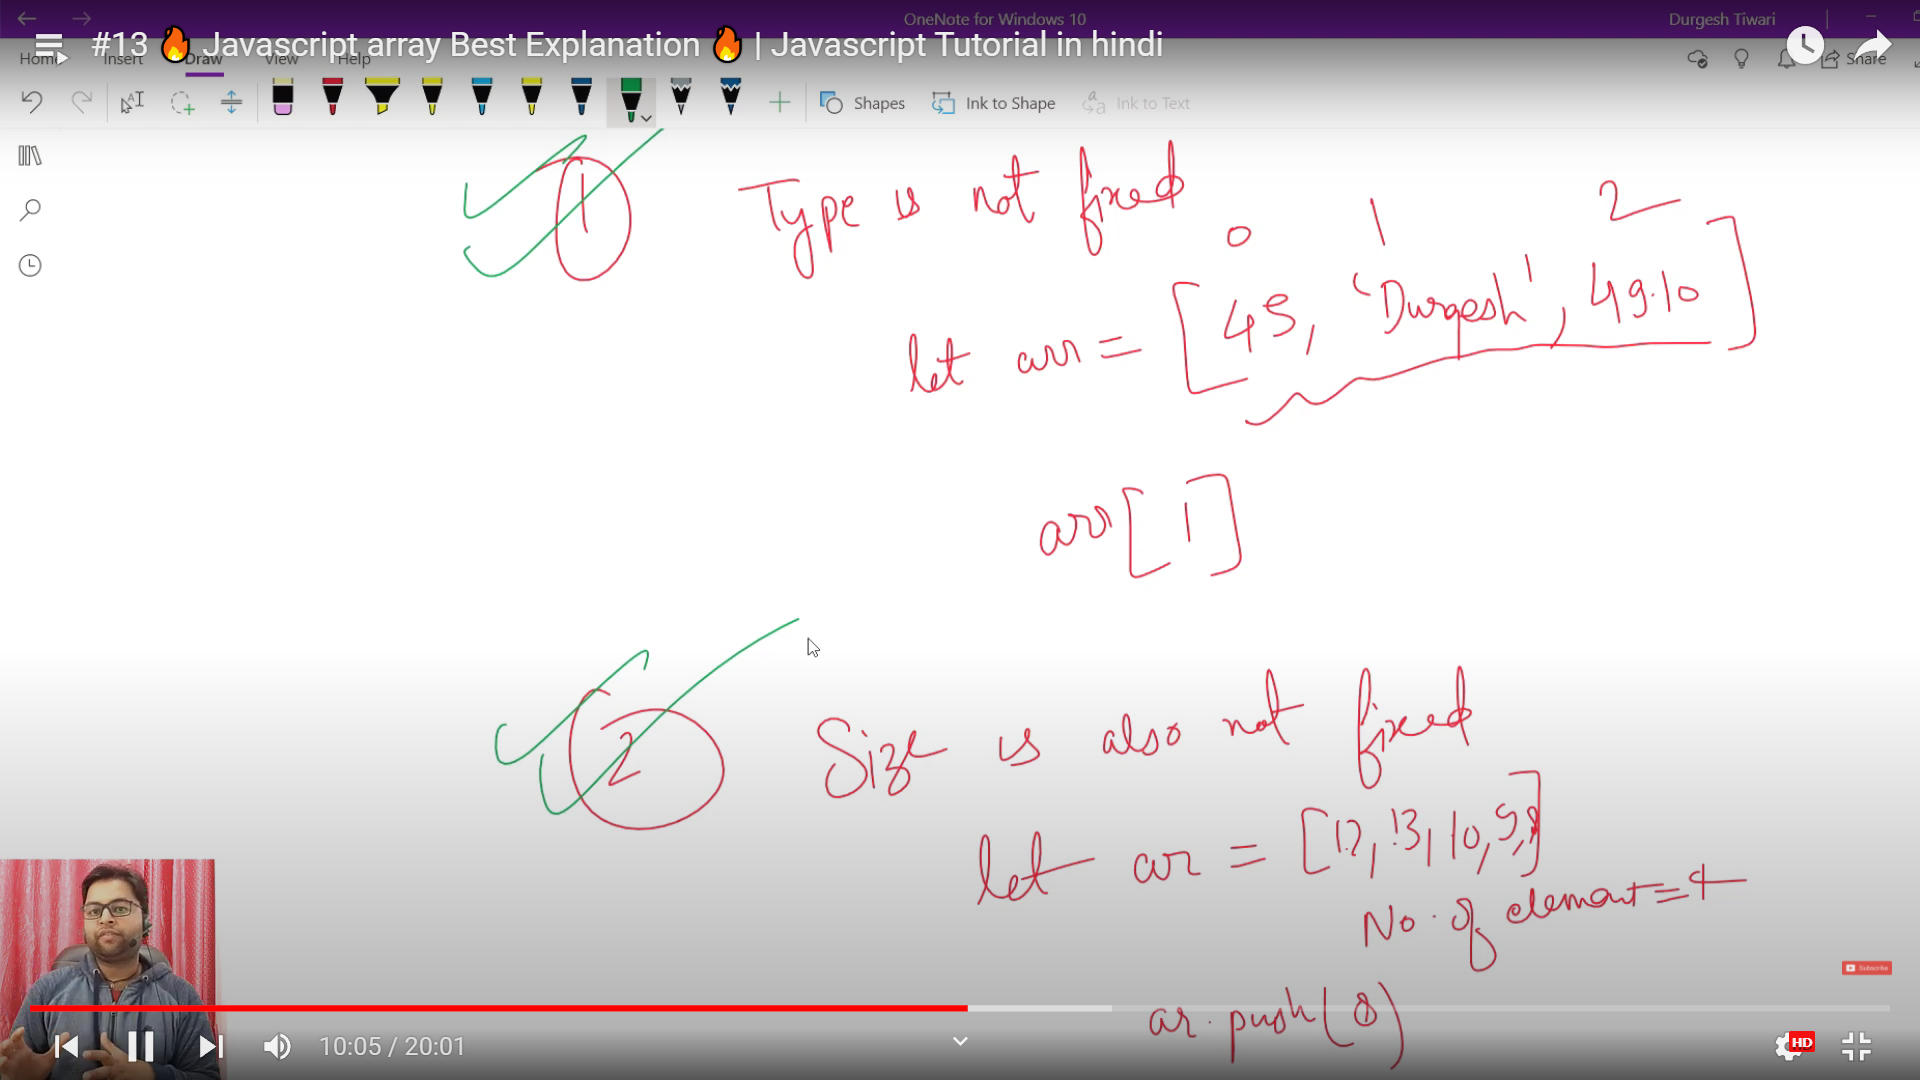 OneNote for Windows 10
Durgesh Tiwari
#13 🔥 Javascript array Best Explanation 🔥 | Javascript Tutorial in hindi
Home Insert Draw View Help
Share
Shapes
Ink to Shape
Ink to Text
1 Type is not fixed
0 1 2
let arr = [45, 'Durgesh', 49.10]
arr[1]
2 Size is also not fixed
let ar = [12, 13, 10, 9, 8]
No. of element = 4
Subscribe
ar.push(8)
10:05 / 20:01
HD